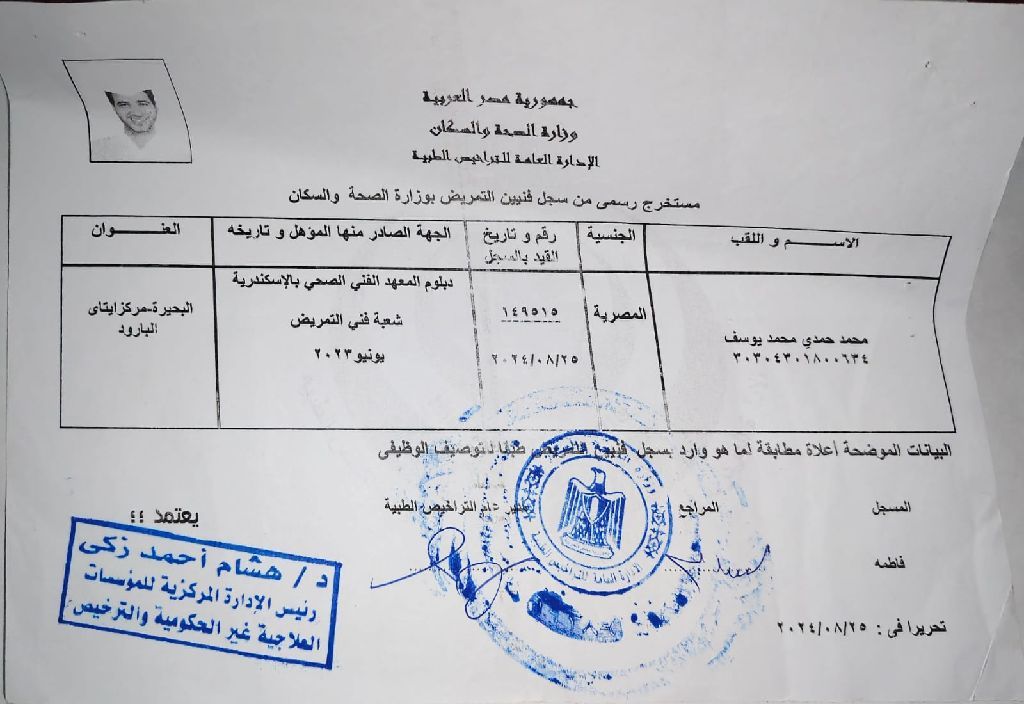 جمهورية مصر العربية
وزارة الصحة والسكان
الإدارة العامة للتراخيص الطبية
مستخرج رسمى من سجل فنيين التمريض بوزارة الصحة والسكان
الاســـم و اللقب
الجنسية
رقم و تاريخ
القيد بالسجل
الجهة الصادر منها المؤهل و تاريخه
العنـــوان
محمد حمدي محمد يوسف
٣٠٣٠٤٣٠١٨٠٠٦٣٤
المصرية
١٤٩٥١٥
٢٠٢٤/٠٨/٢٥
دبلوم المعهد الفني الصحي بالإسكندرية
شعبة فني التمريض
يونيو٢٠٢٣
البحيرة-مركزايتاى
البارود
البيانات الموضحة أعلاة مطابقة لما هو وارد بسجل فنيين التمريض طبقا لتوصيف الوظيفى
المسجل
المراجع
مدير عام التراخيص الطبية
يعتمد ؛؛
فاطمه
د/ هشام أحمد زكى
رئيس الإدارة المركزية للمؤسسات
العلاجية غير الحكومية والترخيص
الادارة العامة للتراخيص الطبية
تحريرا فى : ٢٠٢٤/٠٨/٢٥